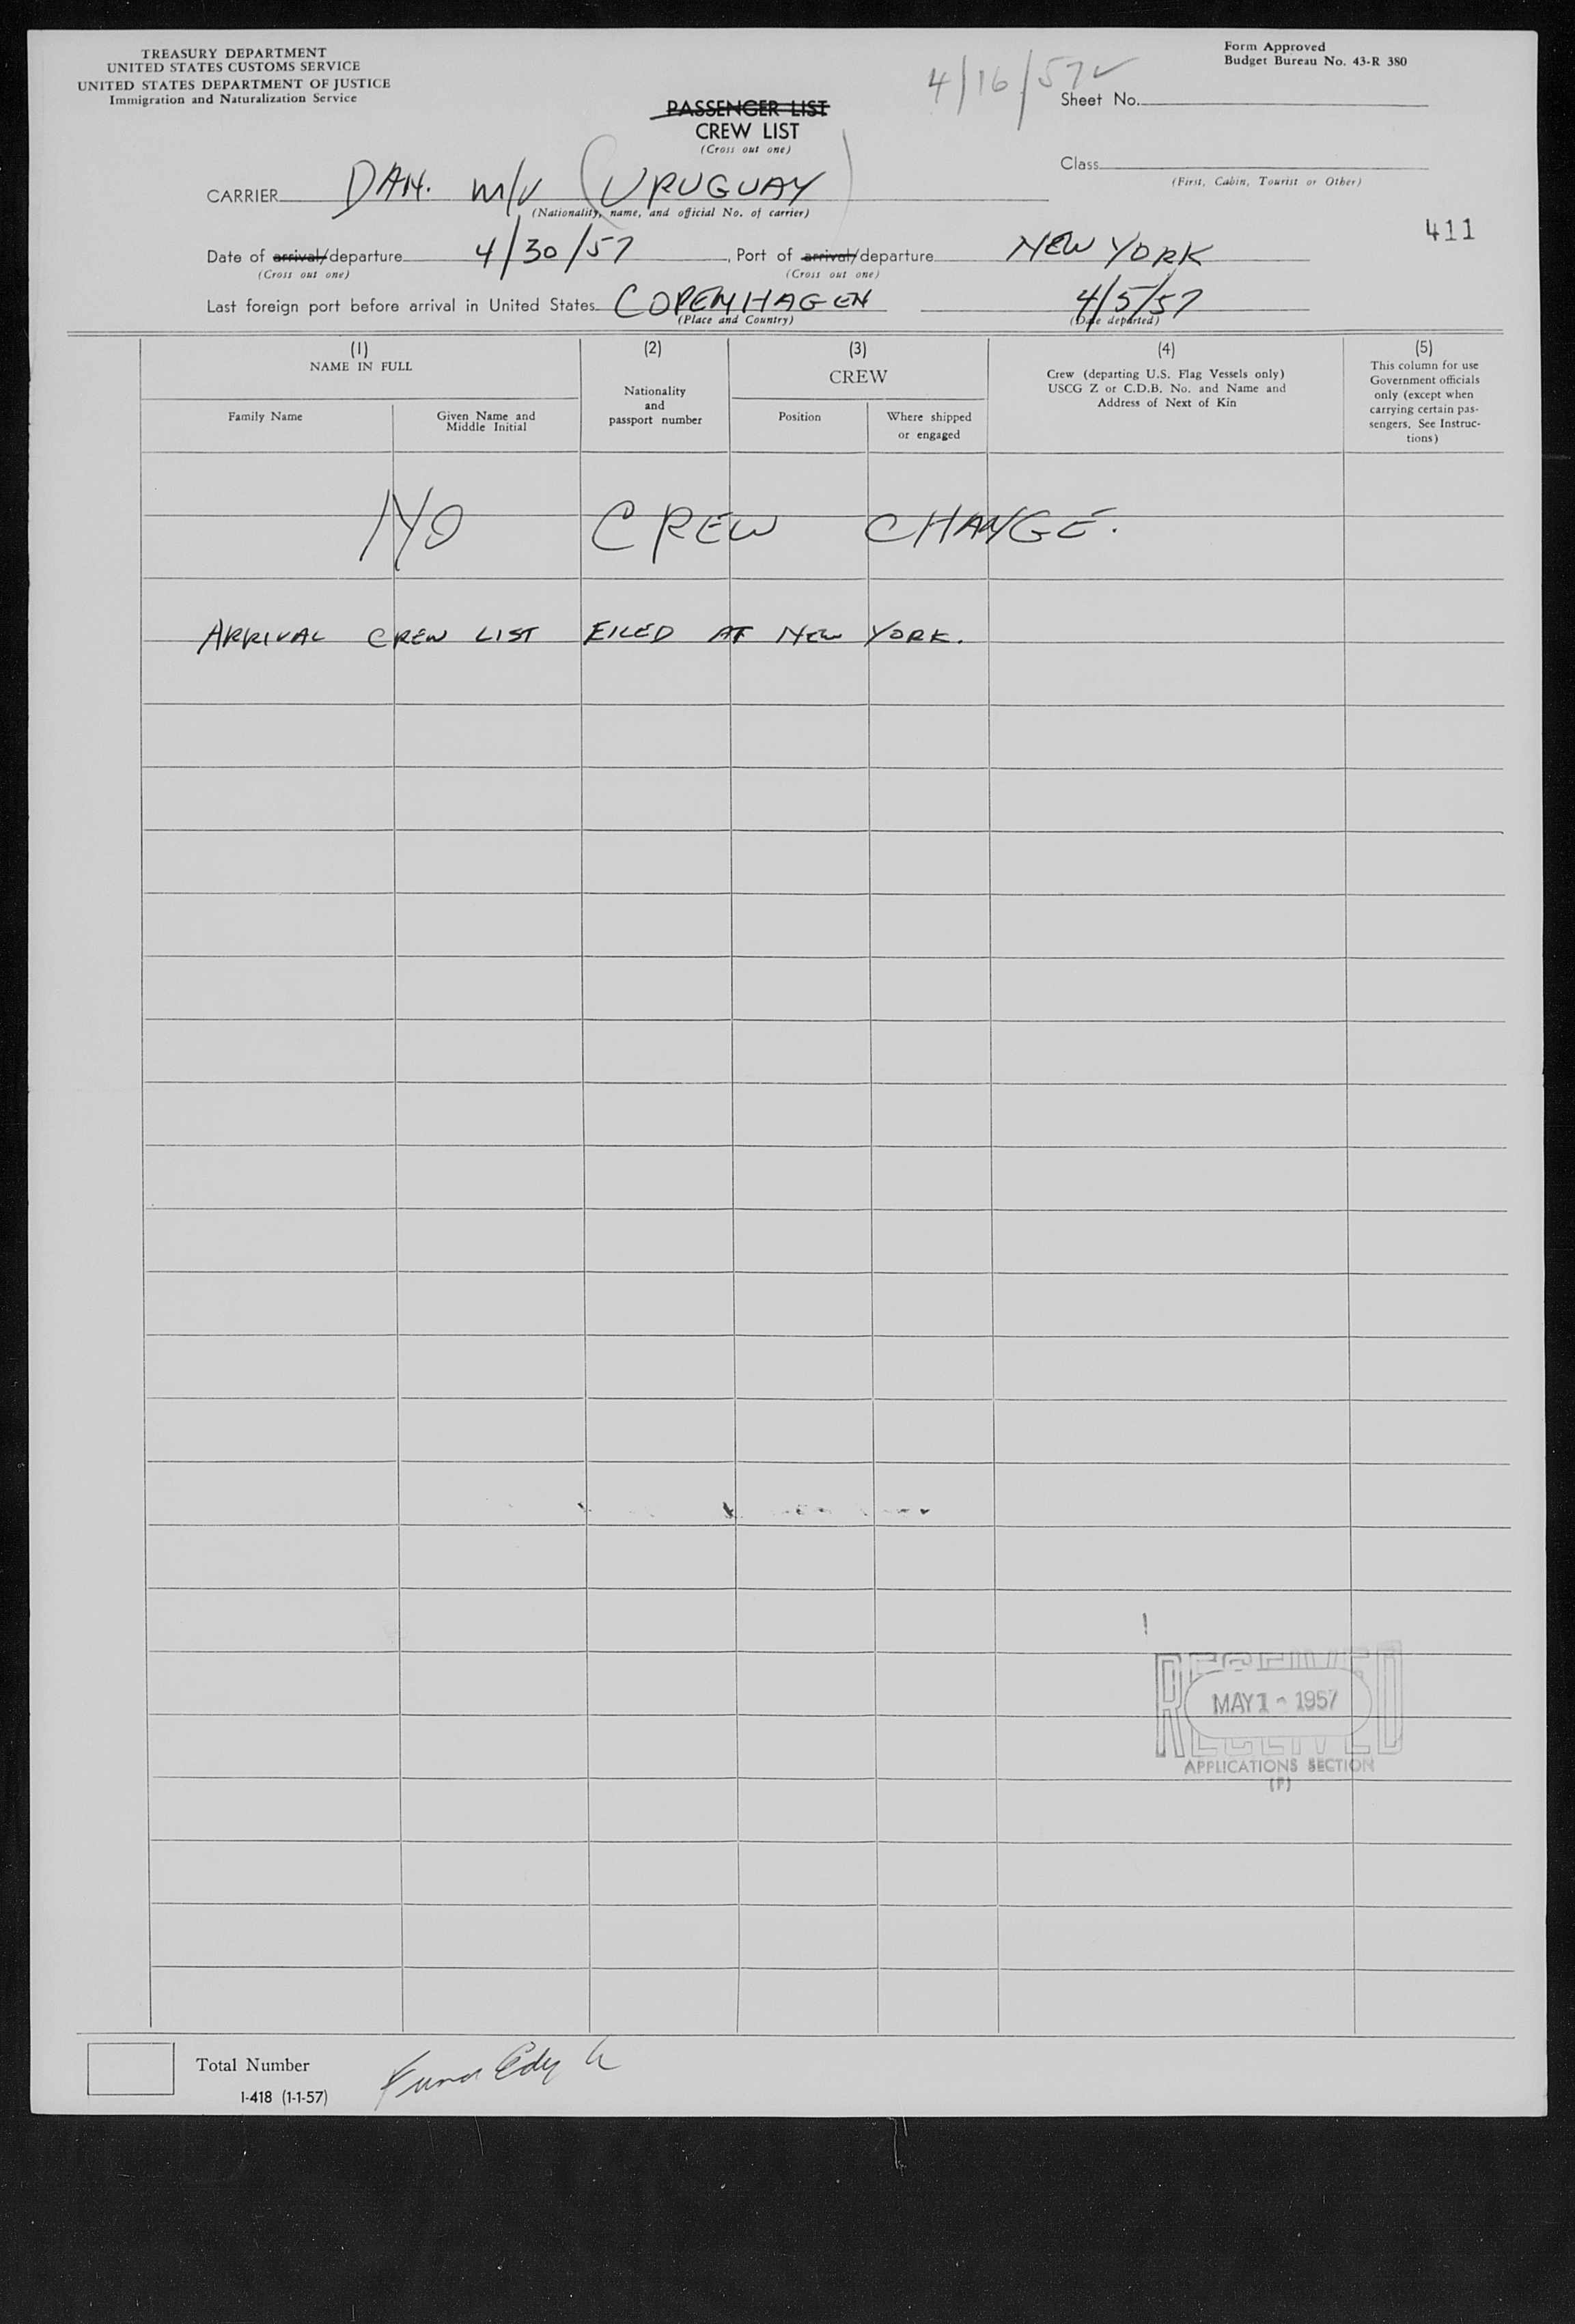 TREASURY DEPARTMENT
UNITED STATES CUSTOMS SERVICE
UNITED STATES DEPARTMENT OF JUSTICE
Immigration and Naturalization Service
Form Approved
Budget Bureau No. 43-R 380
4/16/57 ✓
Sheet No.
PASSENGER LIST
CREW LIST
(Cross out one)
Class
(First, Cabin, Tourist or Other)
CARRIER DAN. M/V (URUGUAY)
(Nationality, name, and official No. of carrier)
411
Date of arrival/departure 4/30/57, Port of arrival/departure NEW YORK
(Cross out one) (Cross out one)
Last foreign port before arrival in United States COPENHAGEN 4/5/57
(Place and Country) (Date departed)
(1)
NAME IN FULL
Family Name
Given Name and
Middle Initial
(2)
Nationality
and
passport number
(3)
CREW
Position
Where shipped
or engaged
(4)
Crew (departing U.S. Flag Vessels only)
USCG Z or C.D.B. No. and Name and
Address of Next of Kin
(5)
This column for use
Government officials
only (except when
carrying certain pas-
sengers, See Instruc-
tions)
NO CREW CHANGE.
ARRIVAL CREW LIST FILED AT NEW YORK.
RECEIVED
MAY 1 - 1957
RECEIVED
APPLICATIONS SECTION
(P)
Total Number
I-418 (1-1-57)